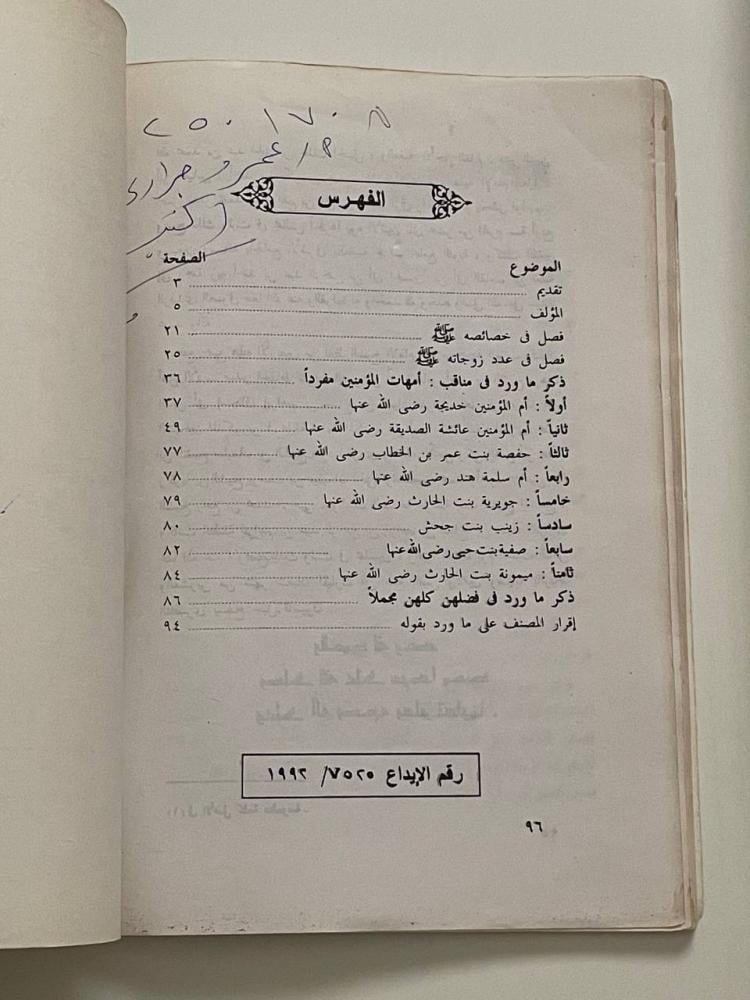 ٢٥٠١٧٠٨
م/ عمرو
الفهرس
الموضوع الصفحة
تقديم ........ ٣
المؤلف ........ ٥
فصل فى خصائصه ﷺ ........ ٢١
فصل فى عدد زوجاته ﷺ ........ ٢٥
ذكر ما ورد فى مناقب : أمهات المؤمنين مفرداً ........ ٣٦
أولاً : أم المؤمنين خديجة رضى الله عنها ........ ٣٧
ثانياً : أم المؤمنين عائشة الصديقة رضى الله عنها ........ ٤٩
ثالثاً : حفصة بنت عمر بن الخطاب رضى الله عنها ........ ٧٧
رابعاً : أم سلمة هند رضى الله عنها ........ ٧٨
خامساً : جويرية بنت الحارث رضى الله عنها ........ ٧٩
سادساً : زينب بنت جحش ........ ٨٠
سابعاً : صفية بنت حيى رضى الله عنها ........ ٨٢
ثامناً : ميمونة بنت الحارث رضى الله عنها ........ ٨٤
ذكر ما ورد فى فضلهن كلهن مجملاً ........ ٨٦
إقرار المصنف على ما ورد بقوله ........ ٩٤
رقم الإيداع ٧٥٢٥ / ١٩٩٢
٩٦